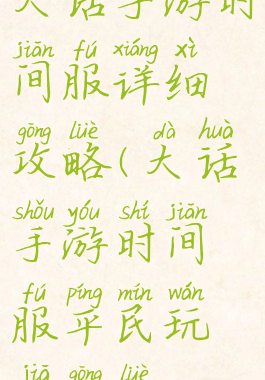 大话手游时
jiān fú xiáng xì
间服详细
gōng lüè dà huà
攻略(大话
shǒu yóu shí jiān
手游时间
fú píng mín wán
服平民玩
jiā gōng lüè